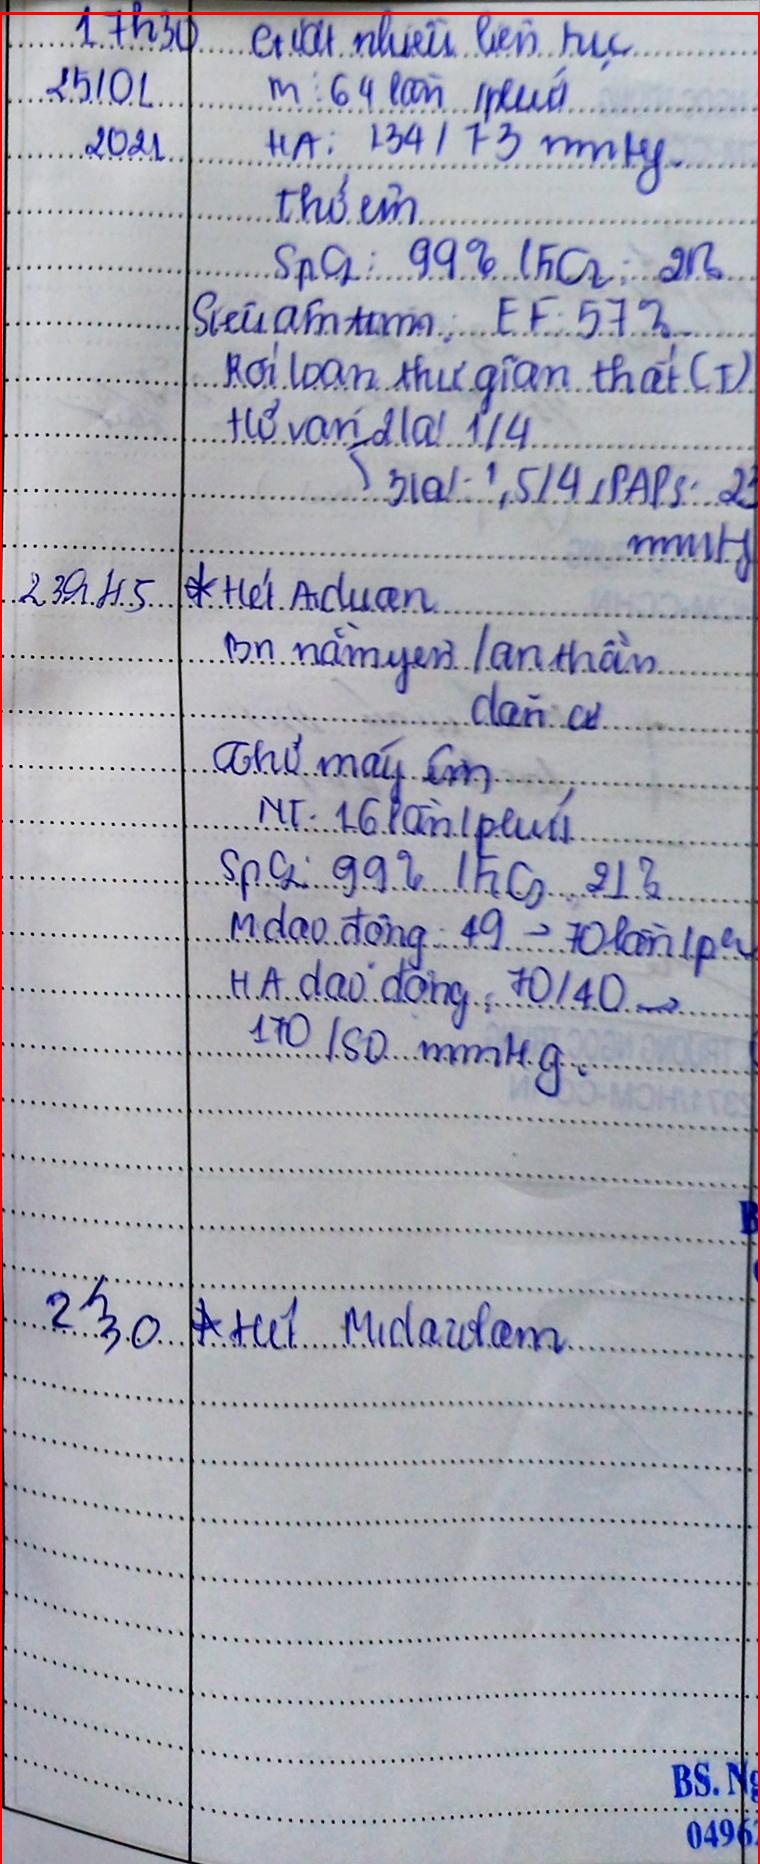 17h30 Giật nhiều liên tục
25/01 m: 64 lần /phút
2021 HA: 134/73 mmHg
thở êm
SpO2: 99% /FiO2: 21%
Siêu âm tim: EF: 57%
Rối loạn thư giãn thất (T)
Hở van 2 lá 1/4
3 lá: 1,5/4, PAPs: 23
mmHg
23h45 * Hết Aduan
Bn nằm yên / an thần
dãn cơ
Thở máy êm
NT: 16 lần/phút
SpO2: 99% /FiO2 21%
M dao động: 49 → 70 lần/ph
HA dao động: 70/40 →
170/80 mmHg.
B
2h30 * Hết Midazolam
BS. Ng
0496